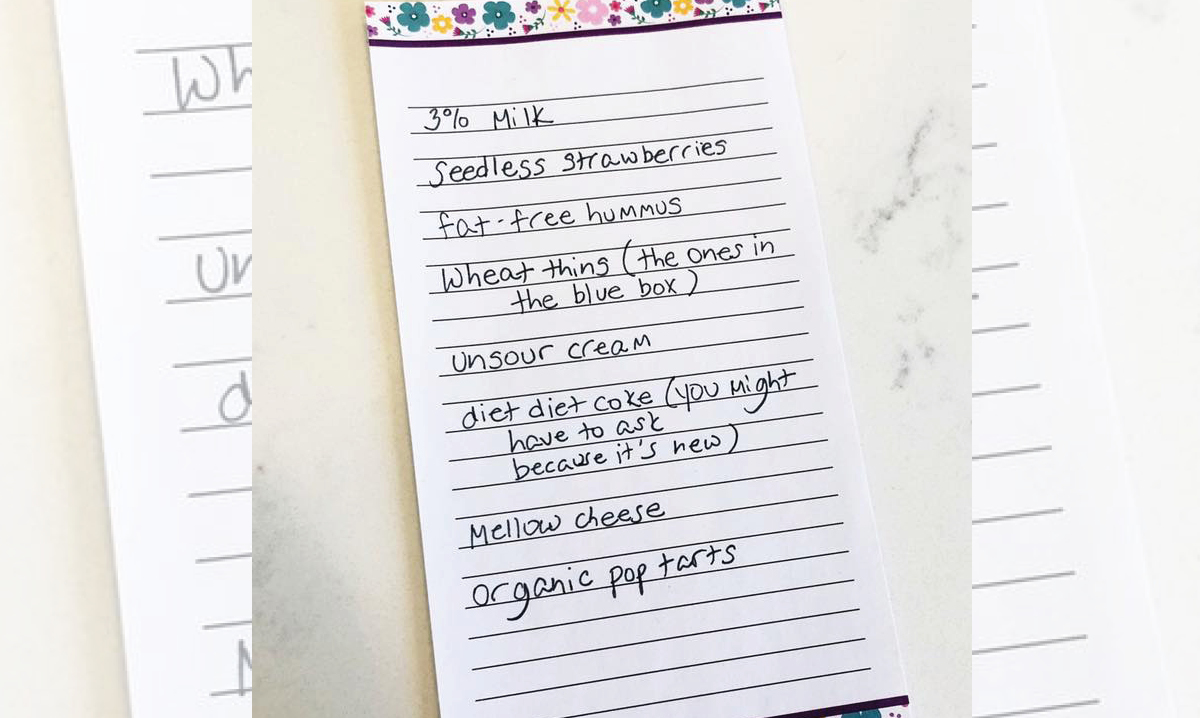 3% Milk
Seedless strawberries
fat-free hummus
Wheat thing (the ones in
the blue box)
unsour cream
diet diet coke (you might
have to ask
because it's new)
Mellow cheese
organic pop tarts
Wh
un
d
M